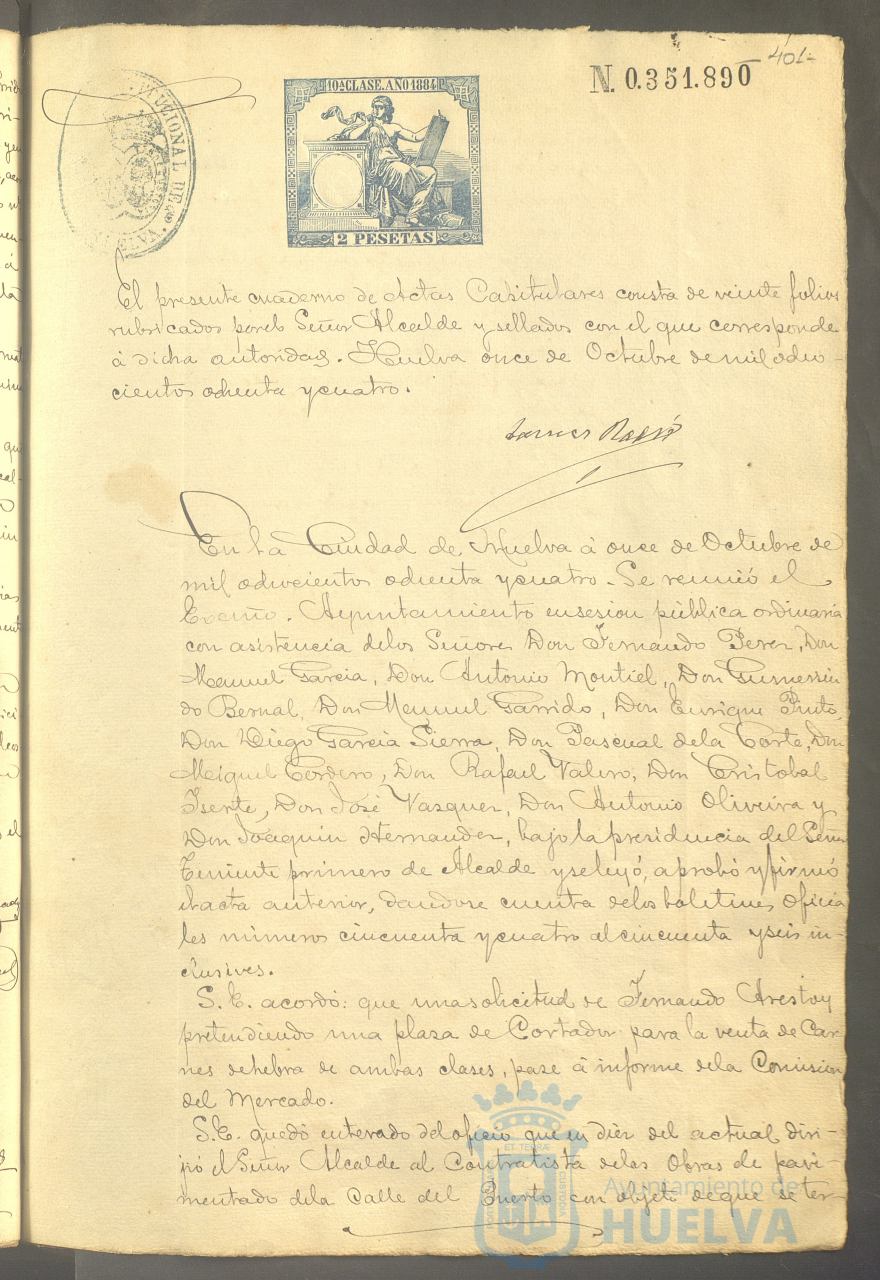 401
N. 0.351.890
10ª CLASE. AÑO 1884
2 PESETAS
El presente cuaderno de Actas Capitulares consta de veinte folios
rubricados por el Señor Alcalde y sellados con el que corresponde
á dicha autoridad. Huelva once de Octubre de mil ocho-
cientos ochenta y cuatro.
En la Ciudad de Huelva á once de Octubre de
mil ochocientos ochenta y cuatro. Se reunió el
Excmo. Ayuntamiento en sesion pública ordinaria
con asistencia de los Señores Don Fernando Perez, Don
Manuel Garcia, Don Antonio Montiel, Don Gumersin
do Bernal, Don Manuel Garrido, Don Enrique Pinto,
Don Diego Garcia Sierra, Don Pascual de la Corte, Don
Miguel Cordero, Don Rafael Valero, Don Cristobal
Iserte, Don José Vazquez, Don Antonio Oliveira y
Don Joaquin Hernandez, bajo la presidencia del Señor
Teniente primero de Alcalde y se leyó, aprobó y firmó
el acta anterior, dandose cuenta de los boletines oficia
les números cincuenta y cuatro al cincuenta y seis in-
clusives.
S. E. acordó: que una solicitud de Fernando
pretendiendo una plaza de Cortador para la venta de Car
nes de hebra de ambas clases, pase á informe de la Comision
del Mercado.
S. E. quedó enterado del oficio que en diez del actual diri-
jió el Señor Alcalde al Contratista de las Obras de pavi-
mentado de la Calle del Puerto con objeto de que se ter-
Ayuntamiento de
HUELVA